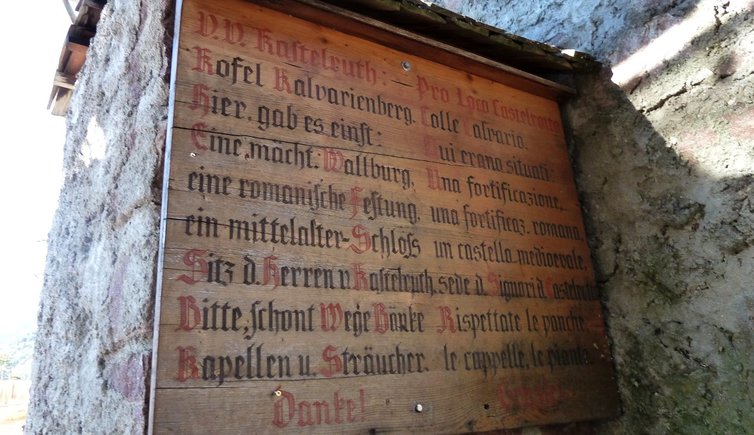 V.V. Kastelruth: Pro Loco Castelrotto
Kofel Kalvarienberg. Colle Calvario.
Hier, gab es einst: Qui erano situati:
Eine, mächt. Wallburg, Una fortificazione,
eine romanische Festung, una fortificaz. romana,
ein mittelalter-Schloss un castello medioevale,
Sitz d. Herren v. Kastelruth. sede d. Signori d. Castelrotto
Bitte, schont Wege Bänke Rispettate le panche
Kapellen u. Sträucher. le cappelle, le piante.
Danke! Grazie!